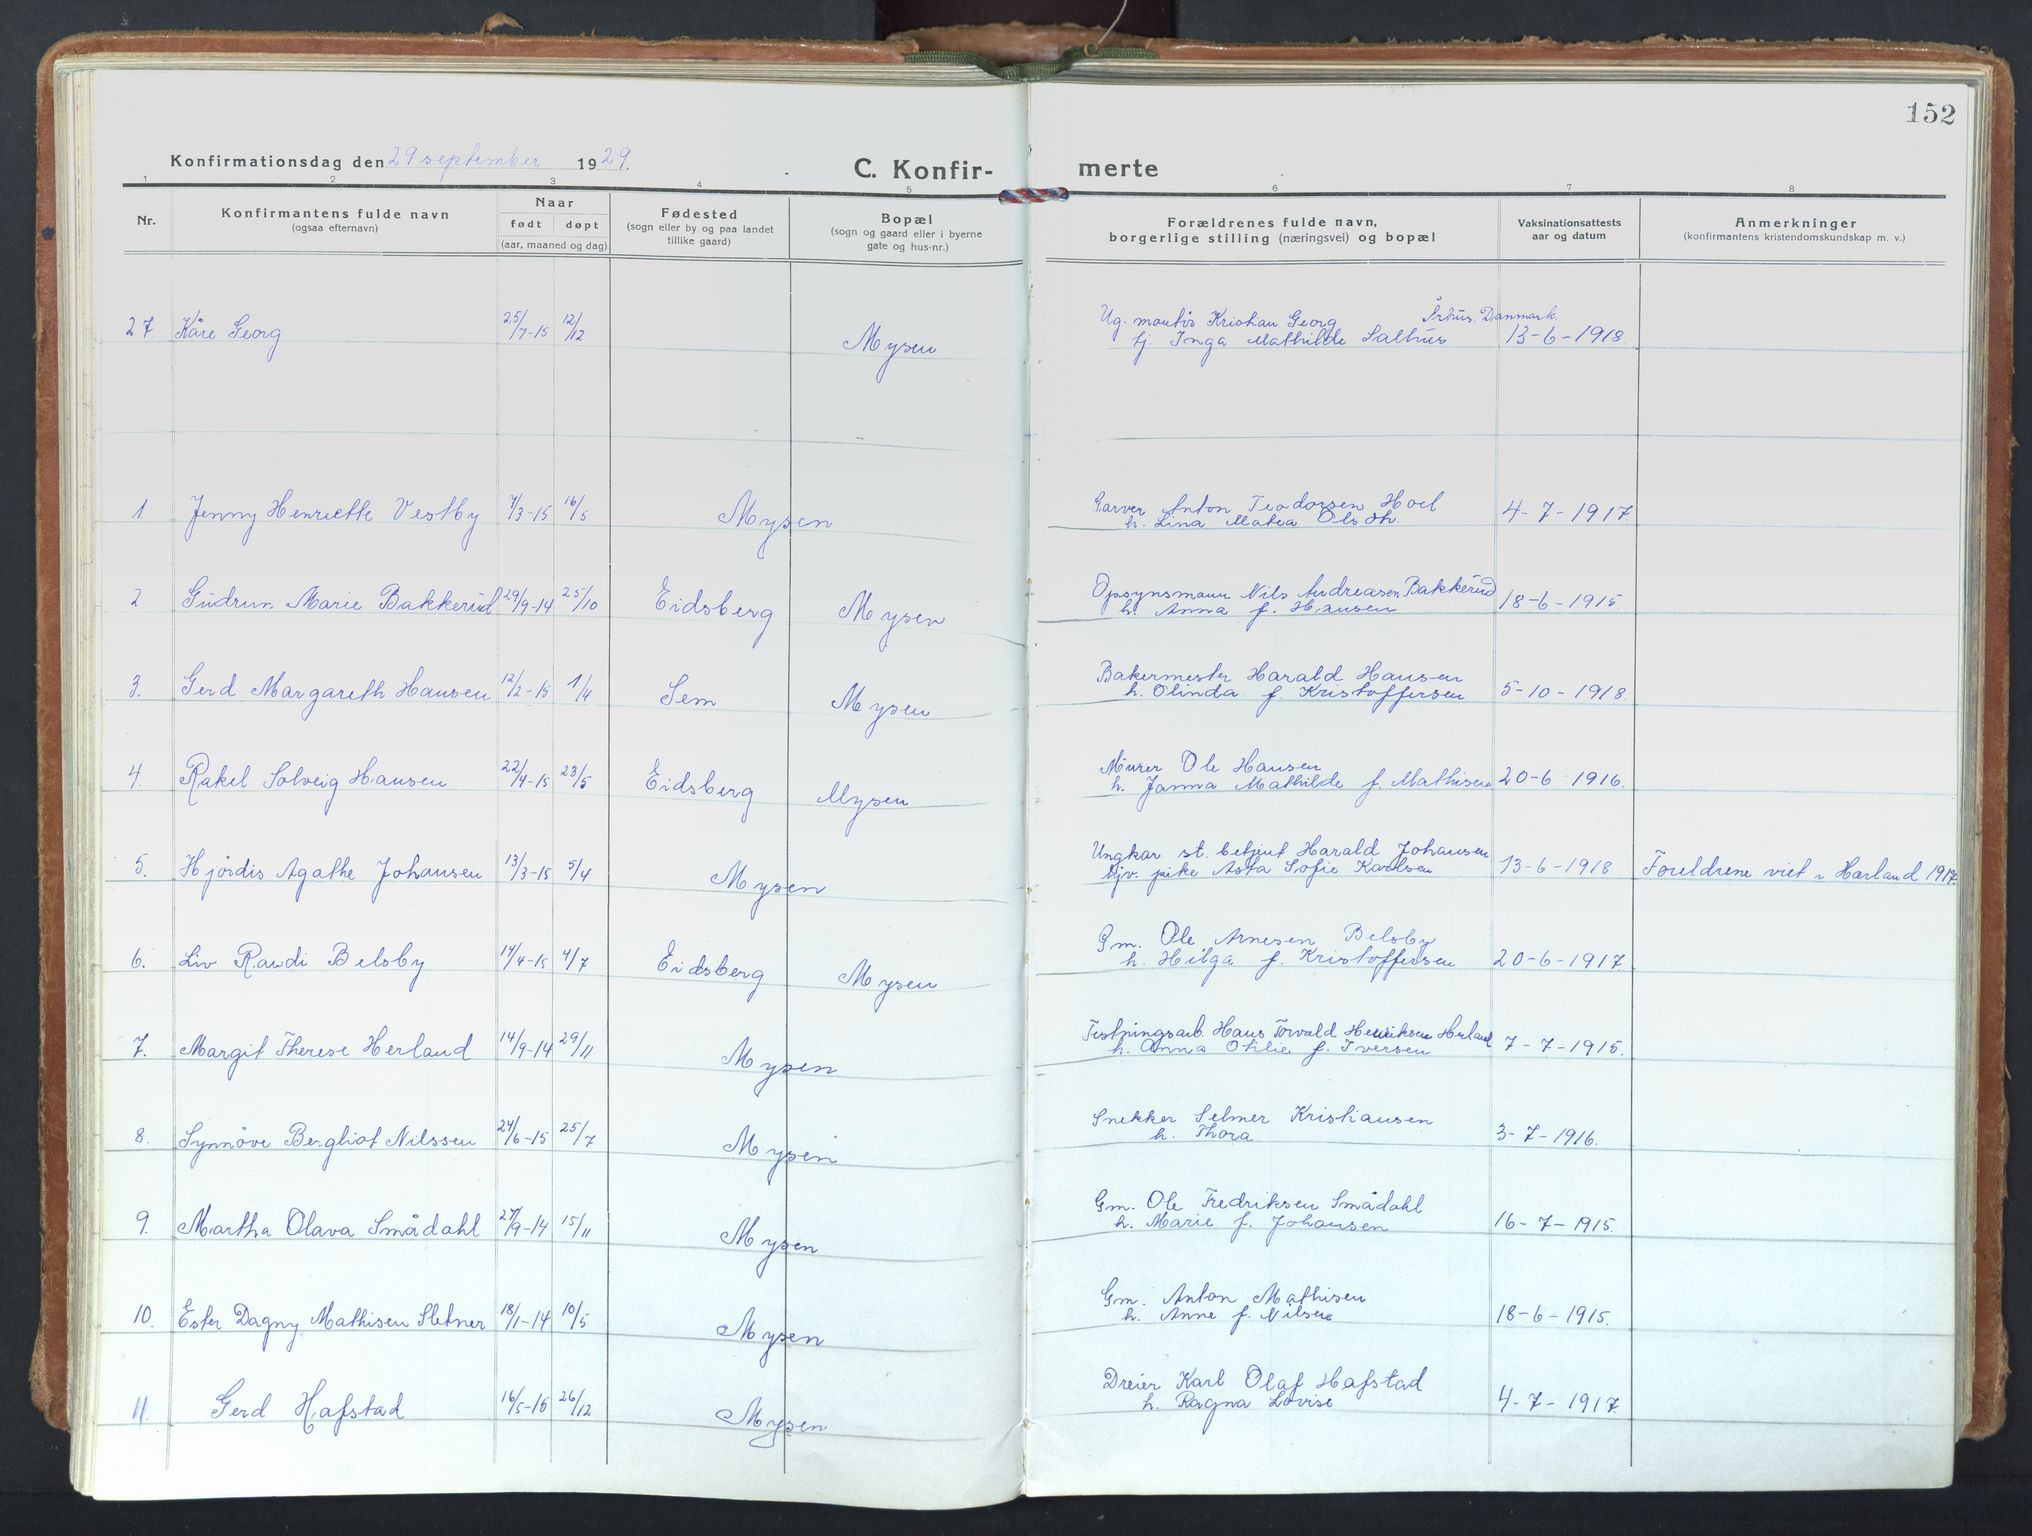 152
Konfirmationsdag den 29 september 1929.
C. Konfir- merte
1 2 3 4 5 6 7 8
Nr.
Konfirmantens fulde navn
(ogsaa efternavn)
Naar
født døpt
(aar, maaned og dag)
Fødested
(sogn eller by og paa landet
tillike gaard)
Bopæl
(sogn og gaard eller i byerne
gate og hus-nr.)
Forældrenes fulde navn,
borgerlige stilling (næringsvei) og bopæl
Vaksinationsattests
aar og datum
Anmerkninger
(konfirmantens kristendomskundskap m. v.)
27. Kåre Georg 25/7-15 12/12 Mysen
Ug. montör Kristian Georg Århus. Danmark.
tj. Inga Mathilde Salhus 13-6-1918.
1. Jenny Henriette Vestby 7/3-15 16/5 Mysen
Garver Anton Teodorsen Hoel
h. Lina Matea Olsdh. 4-7-1917.
2. Gudrun Marie Bakkerud 29/9-14 25/10 Eidsberg Mysen
Opsynsmann Nils Andreasen Bakkerud
h. Anna f. Hansen 18-6-1915.
3. Gerd Margareth Hansen 12/2-15 1/4 Sem Mysen
Bakermester Harald Hansen
h. Olinda f. Kristoffersen 5-10-1918.
4. Rakel Solveig Hansen 22/4-15 23/5 Eidsberg Mysen
Murer Ole Hansen
h. Janna Mathilde f. Mathisen 20-6-1916.
5. Hjördis Agathe Johansen 13/3-15 5/4 Mysen
Ungkar st. betjent Harald Johansen
tjv. pike Asta Sofie Karlsen 13-6-1918 Foreldrene viet i Hærland 1917.
6. Liv Randi Belsby 14/4-15 4/7 Eidsberg Mysen
Gm. Ole Arnesen Belsby
h. Hilga f. Kristoffersen 20-6-1917.
7. Margit Therese Herland 14/9-14 29/11 Mysen
Hans Torvald Henriksen Herland
h. Anna Otilie f. Iversen 7-7-1915.
8. Synnöve Bergliot Nilssen 24/6-15 25/7 Mysen
Snekker Selmer Kristiansen
h. Thora 3-7-1916.
9. Martha Olava Smådahl 27/9-14 15/11 Mysen
Gm. Ole Fredriksen Smådahl
h. Marie f. Johansen 16-7-1915.
10. Ester Dagny Mathisen Sletner 18/1-14 10/5 Mysen
Gm. Anton Mathisen
h. Anne f. Nilsen 18-6-1915.
11. Gerd Hafstad 16/5-15 26/12 Mysen
Dreier Karl Olaf Hafstad
h. Ragna Lovise 4-7-1917.